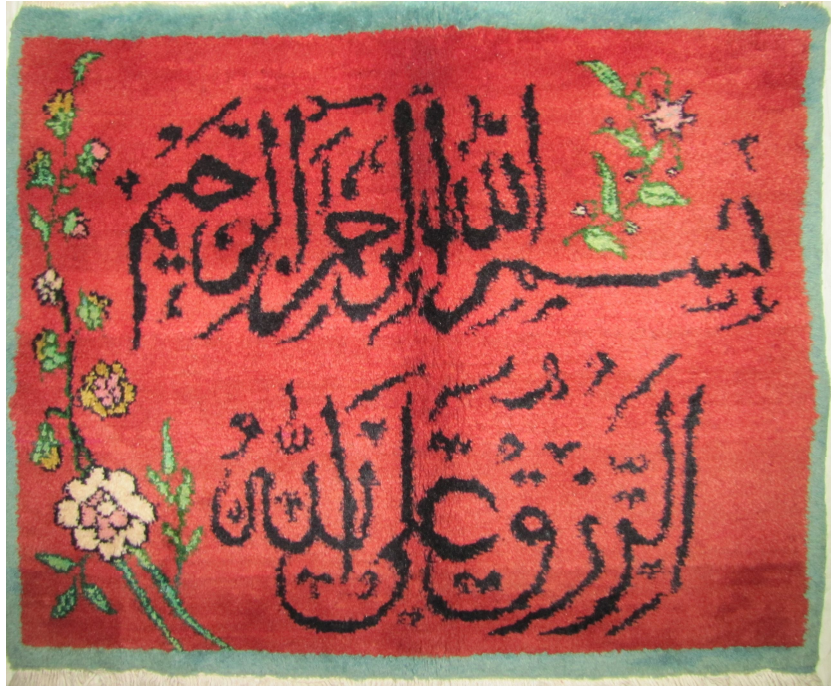 بسم الله الرحمن الرحيم
الرزق على الله